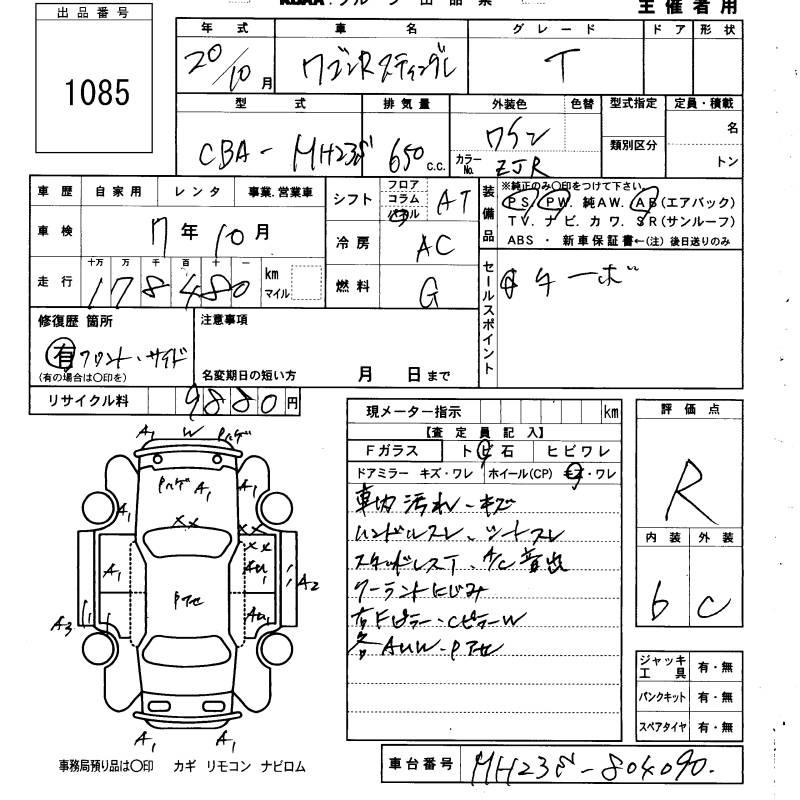 KOAA.グループ 出品票
主催者用
出品番号
1085
年式 車名 グレード ドア 形状
20/10月 ワゴンRスティングレ T
型式 排気量 外装色 色替 型式指定 定員・積載
CBA-MH23S 650 C.C. ワイン 名
カラーNo. ZJR 類別区分 トン
車歴 自家用 レンタ 事業.営業車
車検 7年10月
十万 万 千 百 十 一
走行 178480 km マイル
シフト フロア コラム パネル AT
冷房 AC
燃料 G
装備品
※純正のみ〇印をつけて下さい。
PS. PW. 純AW. AB(エアバック)
TV. ナビ. カワ. SR(サンルーフ)
ABS ・ 新車保証書←(注) 後日送りのみ
セールスポイント
ターボ
修復歴 箇所
有 フロント・サイド
(有の場合は〇印を)
注意事項
名変期日の短い方 月 日まで
リサイクル料 9880円
現メーター指示 km
【査定員記入】
Fガラス トビ石 ヒビワレ
ドアミラー キズ・ワレ ホイール(CP) キズ・ワレ
車内汚れ・キズ
ハンドルスレ、シートスレ
スタッドレスT、A/C音出
クーラントにじみ
右Fピラー・CピラーW
各AUW・Pアセ
評価点
R
内装 外装
b C
ジャッキ工具 有・無
パンクキット 有・無
スペアタイヤ 有・無
A1 W Pハゲ
Pハゲ A1 A1
A1 XX XX
XX
A1 AU1 A2
Pアセ
A3 AU1
A1 A1
事務局預り品は〇印 カギ リモコン ナビロム
車台番号 MH23S-804090.